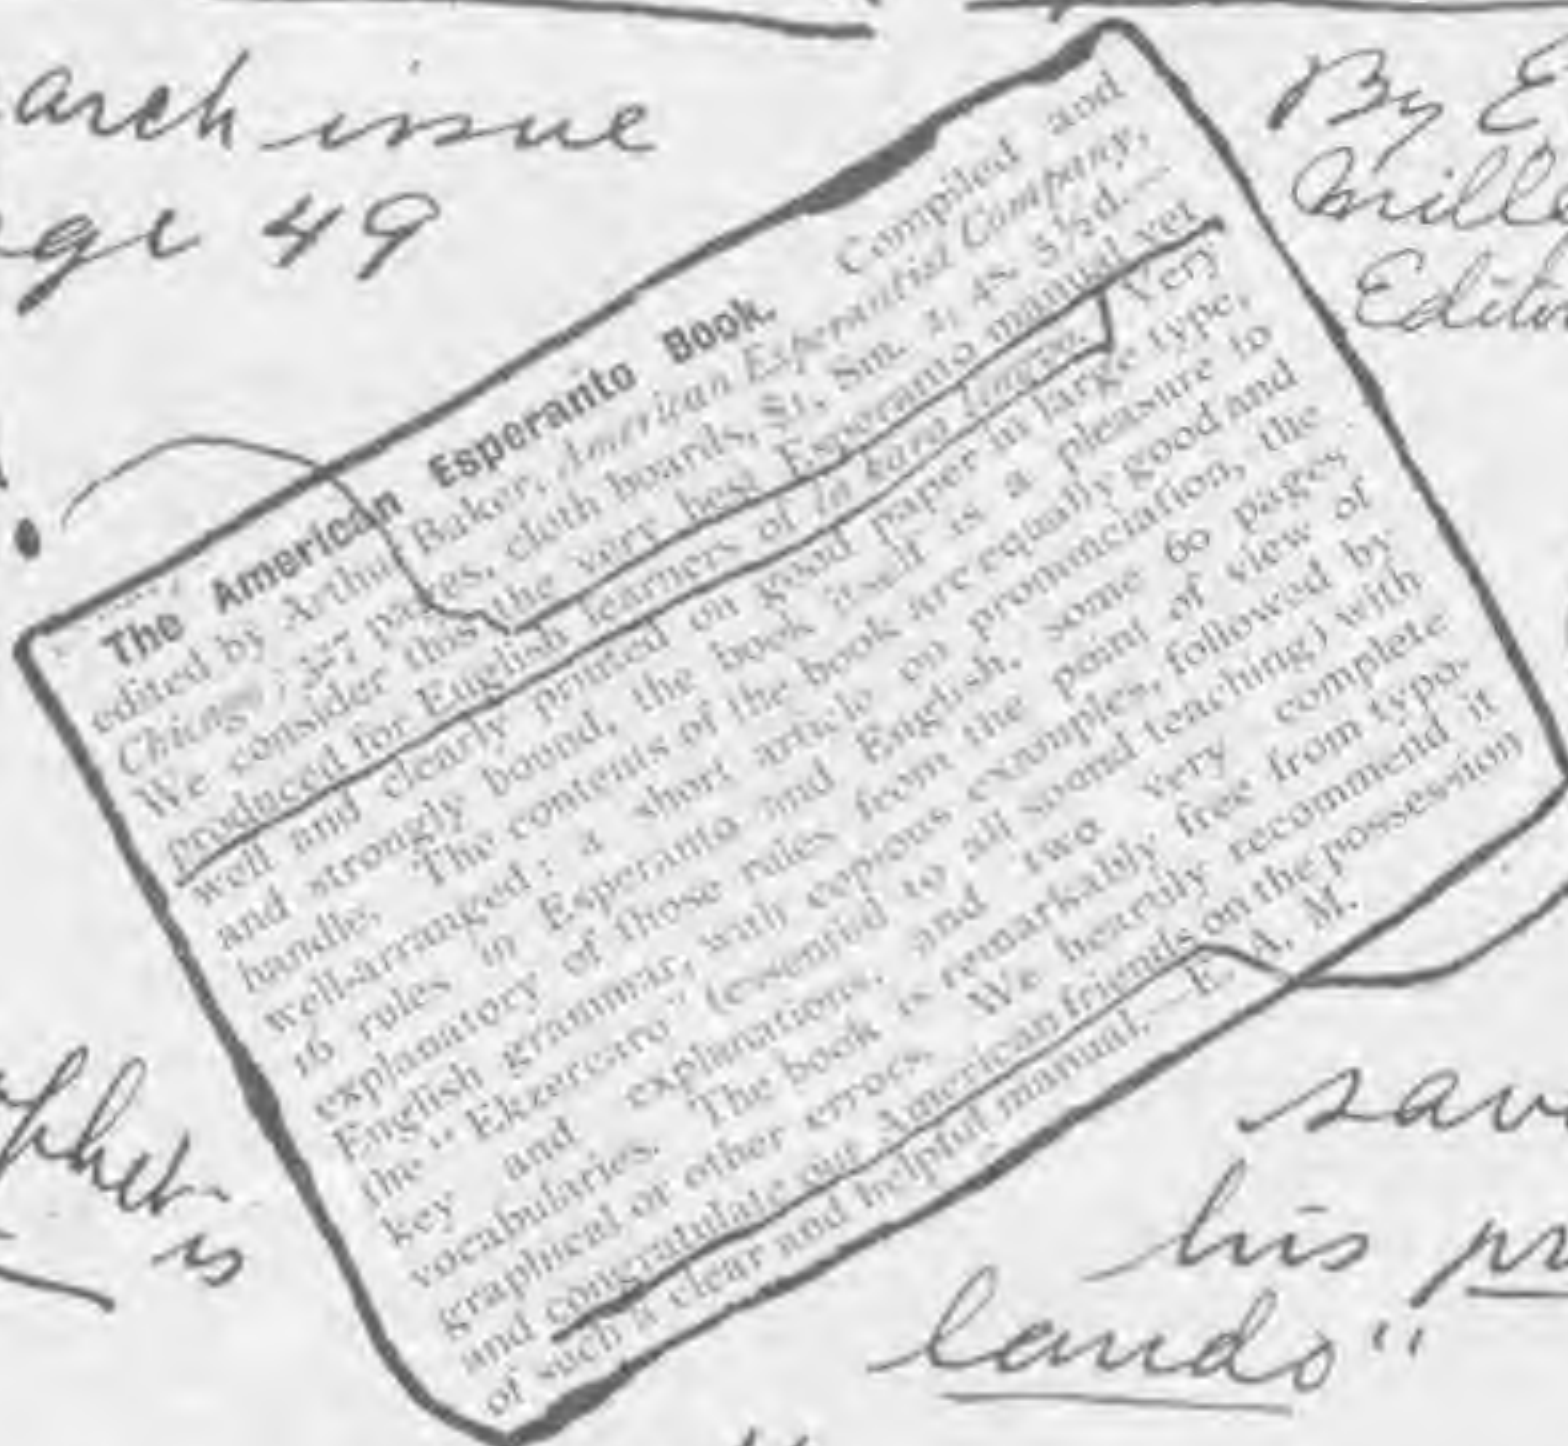 arch issue
age 49
By E
Mille
Editor
The American Esperanto Book. Compiled and
edited by Arthur Baker, American Esperantist Company,
Chicago, 327 pages, cloth boards, $1, Sm. 2, 4s. 3½d.—
We consider this the very best Esperanto manual yet
produced for English learners of la kara lingvo. Very
well and clearly printed on good paper in large type,
and strongly bound, the book itself is a pleasure to
handle. The contents of the book are equally good and
well-arranged: a short article on pronunciation, the
16 rules in Esperanto and English, some 60 pages
explanatory of those rules from the point of view of
English grammar, with copious examples, followed by
the "Ekzercaro" (essential to all sound teaching) with
key and explanations, and two very complete
vocabularies. The book is remarkably free from typo-
graphical or other errors. We heartily recommend it
and congratulate our American friends on the possession
of such a clear and helpful manual.—E. A. M.
opher
is
sav
his pr
lands"